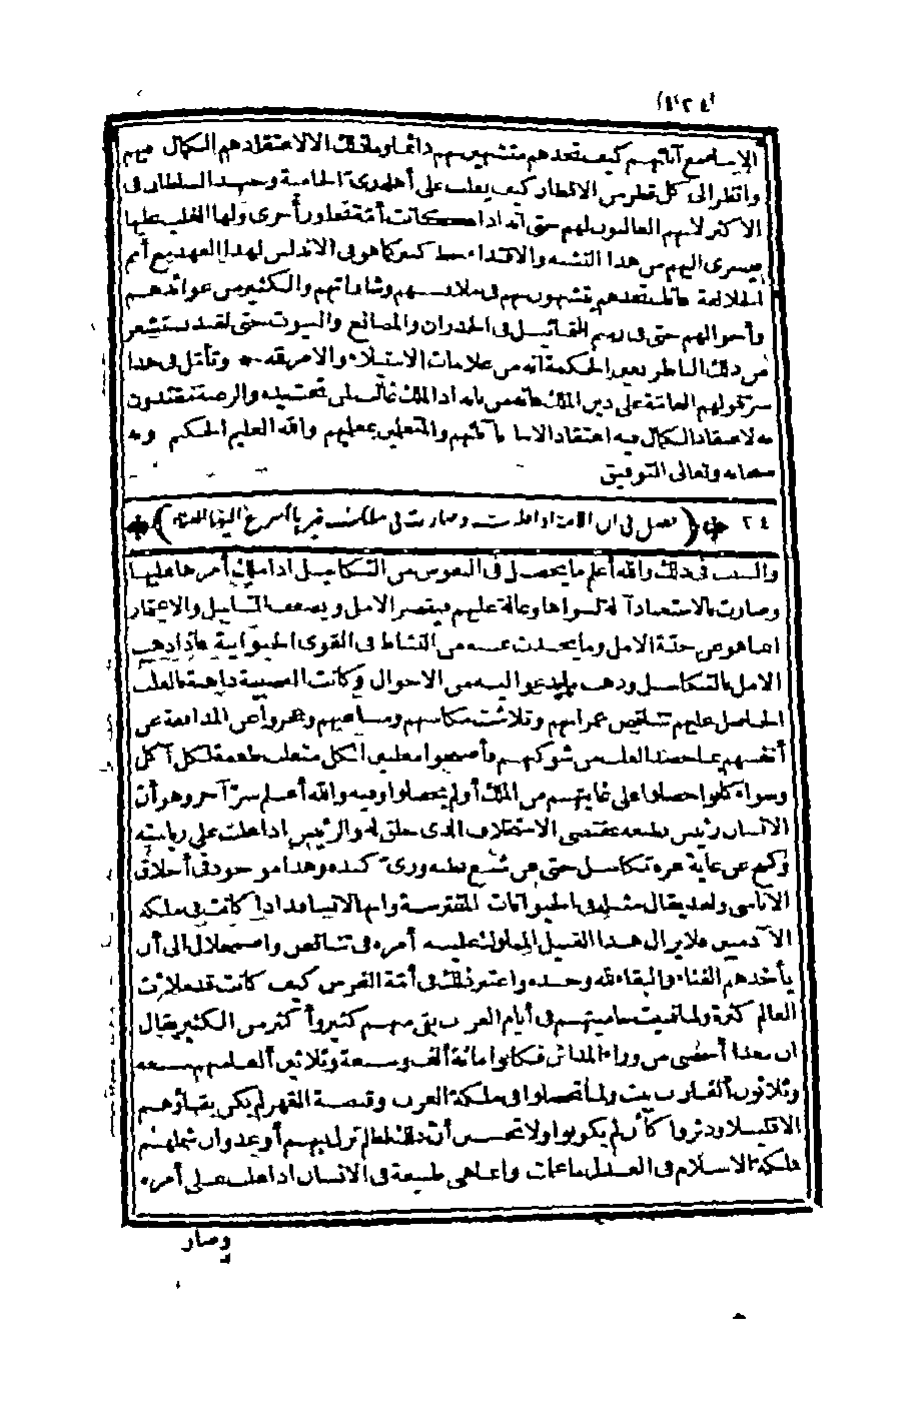 (١٢٤)
الابناء مع آبائهم كيف تجدهم متشبهين بهم دائما وما ذلك الا لاعتقادهم الكمال فيهم
وانظر الى كل قطر من الاقطار كيف يغلب على أهله زى الحامية وجند السلطان فى
الاكثر لانهم الغالبون لهم حتى انه اذا كانت أمة تجاور أخرى ولها الغلب عليها
فيسرى اليهم من هذا التشبه والاقتداء حظ كبير كما هو فى الاندلس لهذا العهد مع أمم
الجلالقة فانك تجدهم يتشبهون بهم فى ملابسهم وشاراتهم والكثير من عوائدهم
وأحوالهم حتى فى رسم التماثيل فى الجدران والمصانع والبيوت حتى لقد يستشعر
من ذلك الناظر بعين الحكمة أنه من علامات الاستيلاء والامر لله وتأمل فى هذا
سر قولهم العامة على دين الملك فانه من بابه اذ الملك غالب لمن تحت يده والرعية مقتدون
به لاعتقاد الكمال فيه اعتقاد الابناء با بائهم والمتعلمين بمعلميهم والله العليم الحكيم وبه
سبحانه وتعالى التوفيق
٢٤ (فصل فى ان الامة اذا غلبت وصارت فى ملك غيرها أسرع اليها الفناء)
والسبب فى ذلك والله أعلم ما يحصل فى النفوس من التكاسل اذا ملك أمرها عليها
وصارت بالاستعباد آلة لسواها وعالة عليهم فيقصر الامل ويضعف التناسل والاعتمار
انما هو عن جدة الامل وما يحدث عنه من النشاط فى القوى الحيوانية فاذا ذهب
الامل بالتكاسل وذهب ما يدعو اليه من الاحوال وكانت العصبية ذاهبة بالغلب
الحاصل عليهم تناقص عمرانهم وتلاشت مكاسبهم ومساعيهم وعجزوا عن المدافعة عن
أنفسهم بما خضد الغلب من شوكتهم فأصبحوا مغلبين لكل متغلب طعمة لكل آكل
وسواء كانوا حصلوا على غايتهم من الملك أو لم يحصلوا وفيه والله أعلم سر آخر وهو أن
الانسان رئيس بطبعه بمقتضى الاستخلاف الذى خلق له والرئيس اذا غلب على رياسته
وكبح عن غاية عزه تكاسل حتى عن شبع بطنه ورى كبده وهذا موجود فى أخلاق
الاناسى ولقد يقال مثله فى الحيوانات المفترسة وانها لا تسافد اذا كانت فى ملكة
الآدميين فلا يزال هذا القبيل المملوك عليه أمره فى تناقص واضمحلال الى أن
يأخذهم الفناء والبقاء لله وحده واعتبر ذلك فى أمة الفرس كيف كانت قد ملأت
العالم كثرة ولما فنيت حاميتهم فى أيام العرب بقى منهم كثير وأكثر من الكثير يقال
ان سعدا أحصى من وراء المدائن فكانوا مائة ألف وسبعة وثلاثين ألفا منهم سبعة
وثلاثون ألفا رب بيت ولما تحصلوا فى ملكة العرب وقبضة القهر لم يكن بقاؤهم
الا قليلا ودثروا كأن لم يكونوا ولا تحسبن أن ذلك لظلم نزل بهم أو عدوان شملهم
فملكة الاسلام فى العدل ما علمت وانما هى طبيعة فى الانسان اذا غلب على أمره
وصار